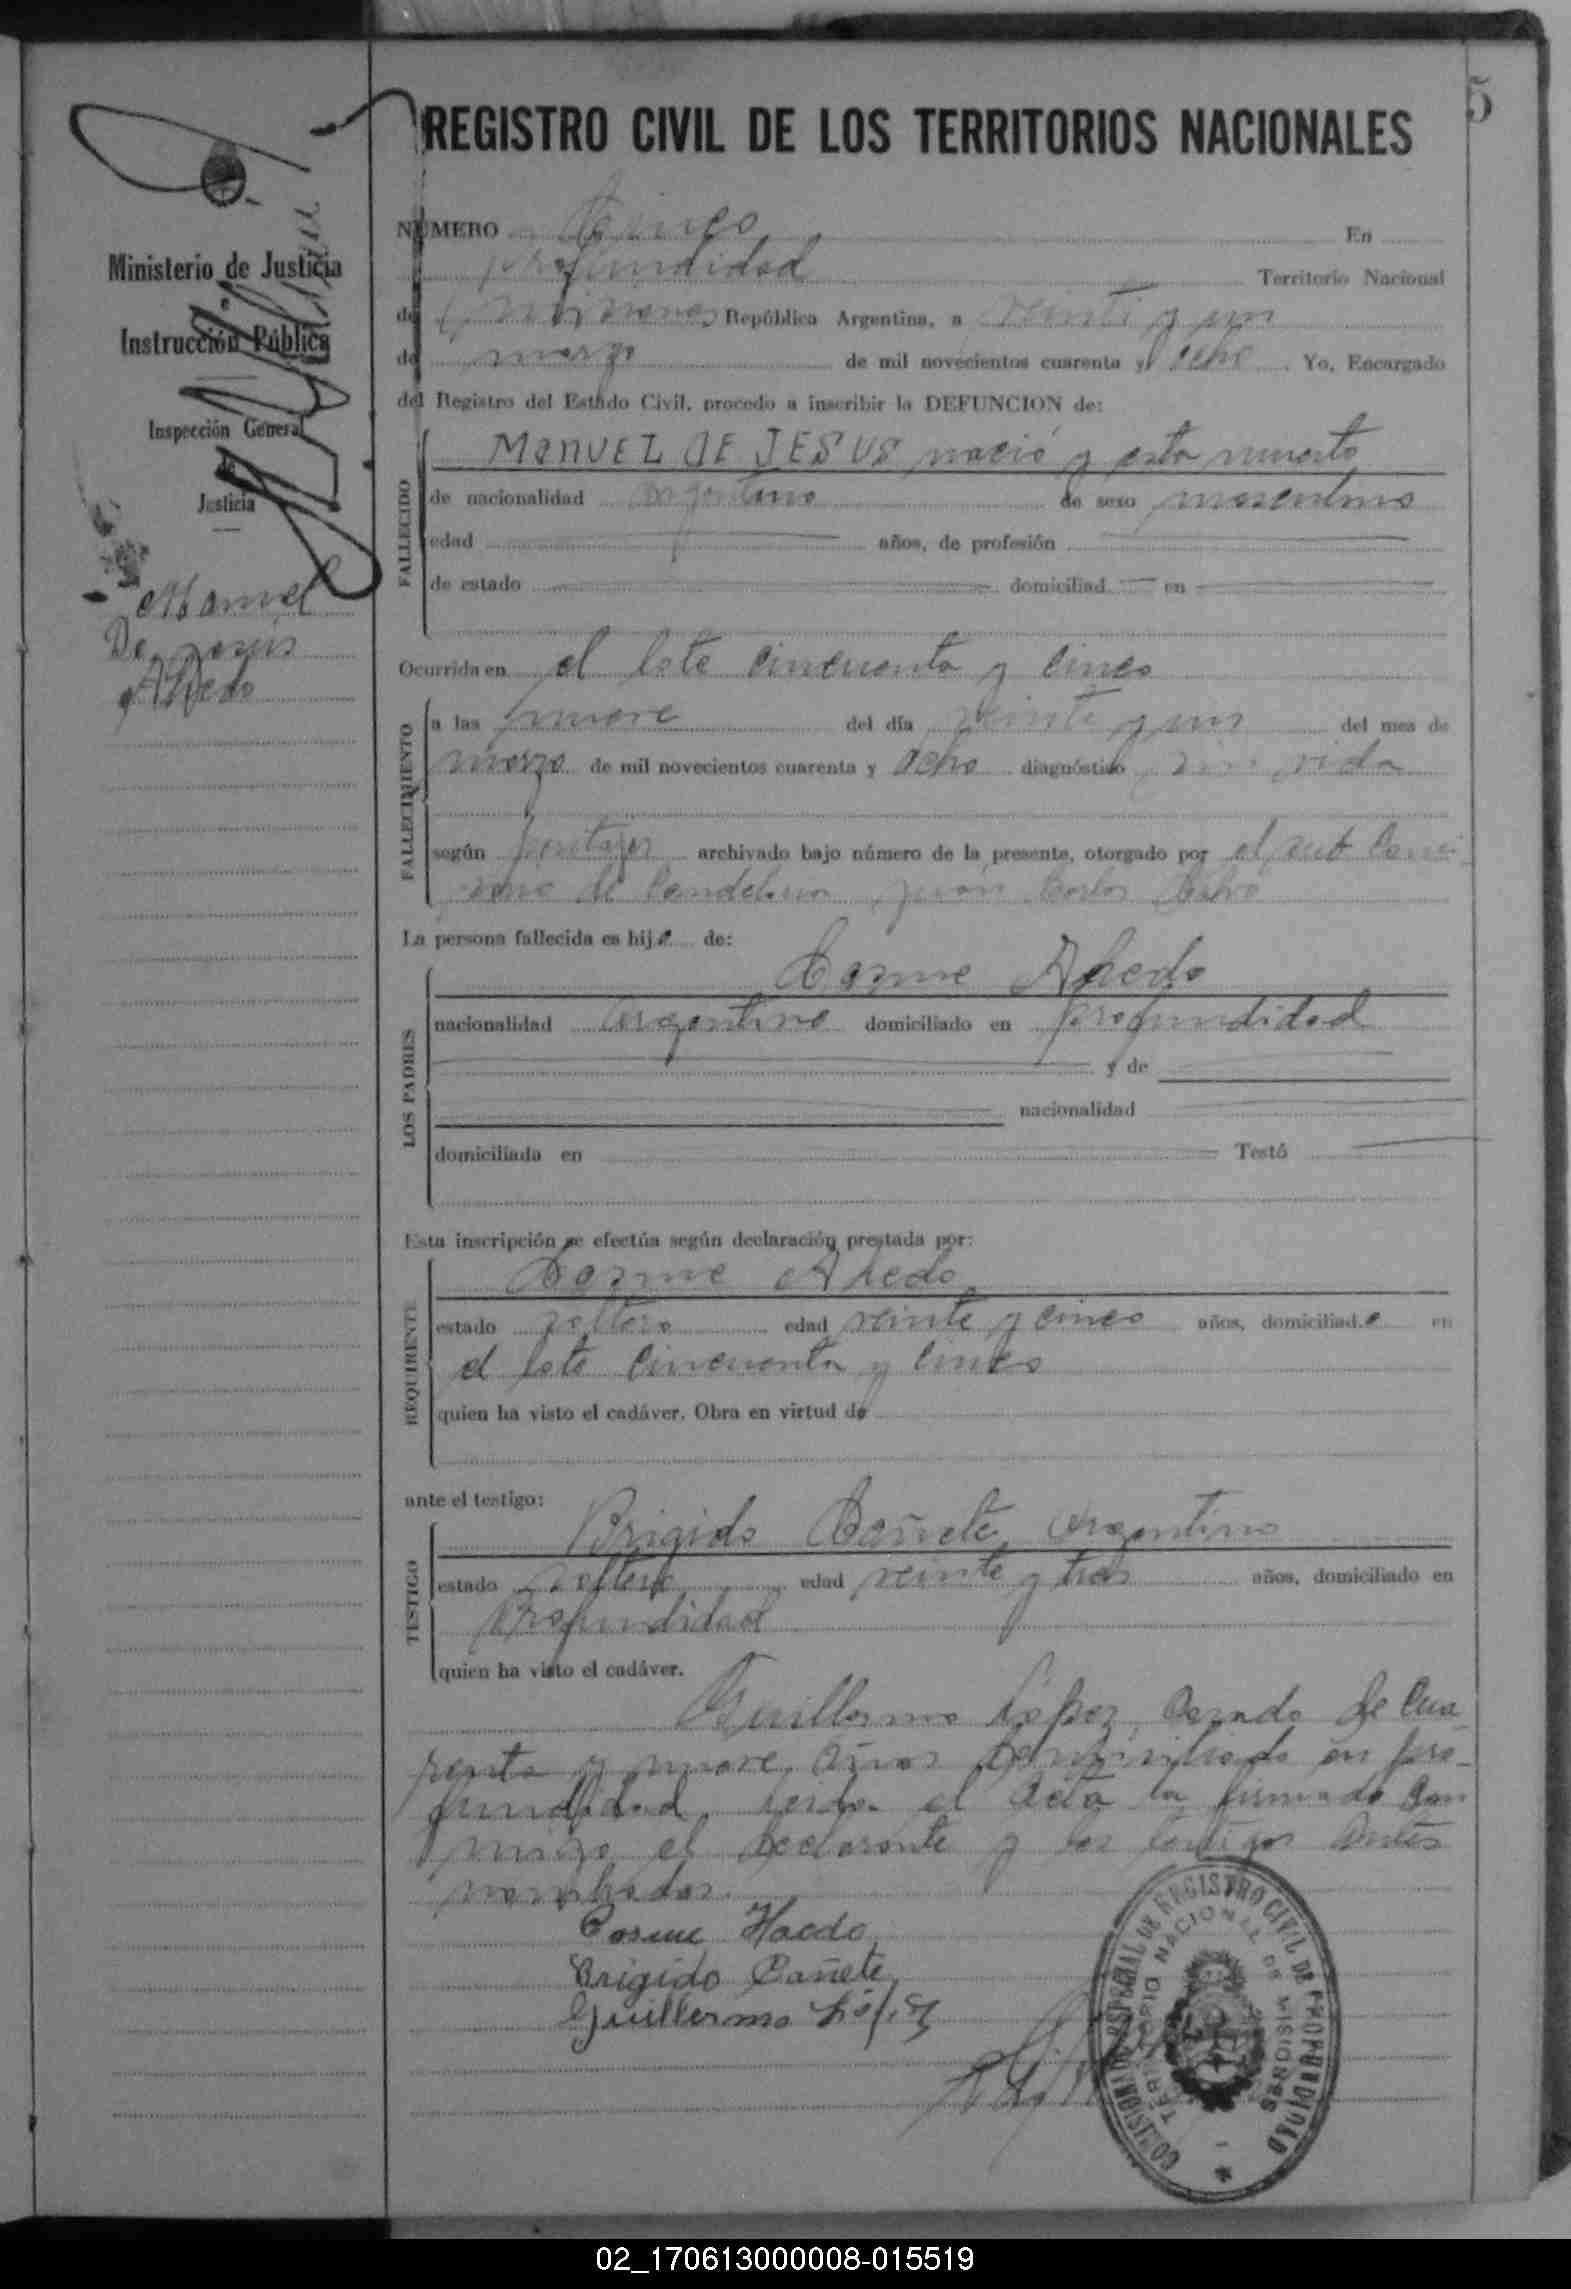 5
REGISTRO CIVIL DE LOS TERRITORIOS NACIONALES
Ministerio de Justicia
e
Instrucción Pública
Inspección General
de
Justicia
Manuel
De Jesus
Ahedo
NÚMERO Cinco En
profundidad Territorio Nacional
de Misiones República Argentina, a veinti y un
de marzo de mil novecientos cuarenta y ocho. Yo, Encargado
del Registro del Estado Civil, procedo a inscribir la DEFUNCION de:
FALLECIDO
MANUEL DE JESUS nació y esta muerto
de nacionalidad argentino de sexo masculino
edad años, de profesión
de estado domiciliad en
Ocurrida en el lote cincuenta y cinco
FALLECIMIENTO
a las nueve del día veinte y un del mes de
marzo de mil novecientos cuarenta y ocho diagnóstico sin vida
según archivado bajo número de la presente, otorgado por el sub Comi-
sario de Candelaria Juan Carlos
La persona fallecida es hijo de:
LOS PADRES
Cosme Ahedo
nacionalidad argentino domiciliado en profundidad
y de
nacionalidad
domiciliada en Testó
Esta inscripción se efectúa según declaración prestada por:
REQUIRENTE
Cosme Ahedo
estado soltero edad veinte y cinco años, domiciliado en
el lote cincuenta y cinco
quien ha visto el cadáver. Obra en virtud de
ante el testigo:
TESTIGO
Brigido Cañete, argentino
estado soltero edad veinte y tres años, domiciliado en
Profundidad
quien ha visto el cadáver.
Guillermo López, Casado de Cua-
renta y nueve años domiciliado en pro-
fundidad, leida el acta la firmado con
migo el declarante y los testigos antes
nombrados.
Cosme Haedo
Brigido Cañete
Guillermo López
COMISION ESPECIAL DE REGISTRO CIVIL DE PROFUNDIDAD
TERRITORIO NACIONAL DE MISIONES
02_170613000008-015519